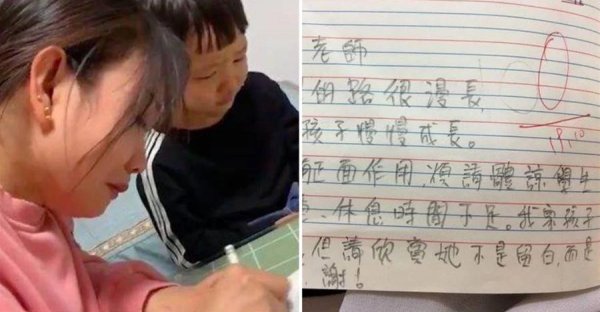 老師
的路很漫長,
孩子慢慢成長。
正面作用煩請體諒學生
休息時間不足。我家孩子
但請欣賞她不是留白,而是
謝!